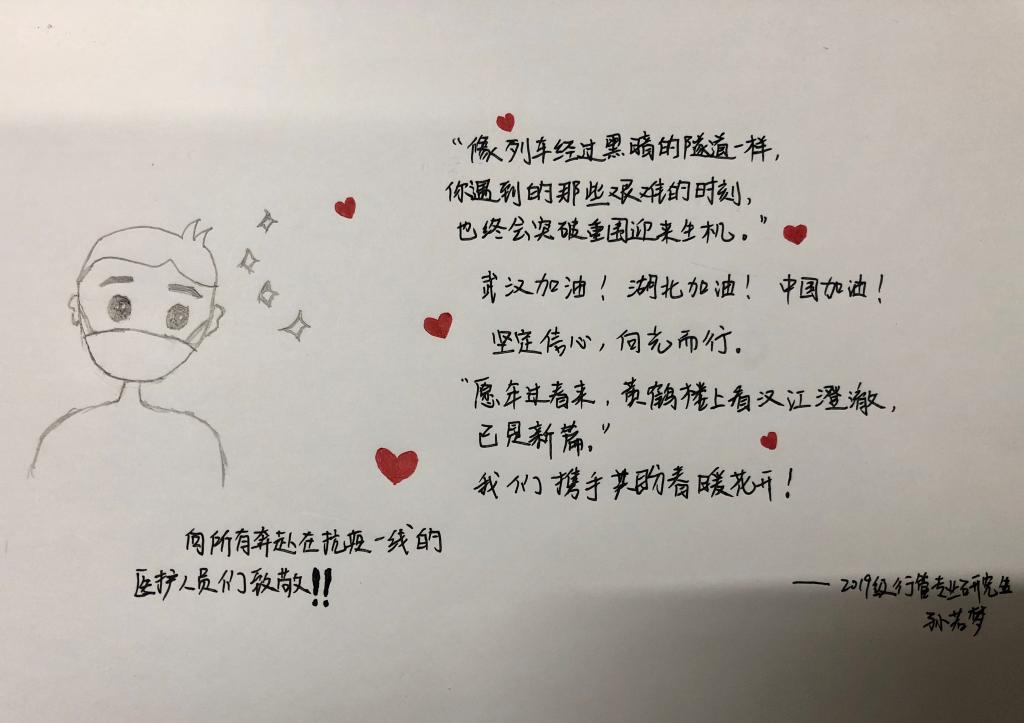 “像列车经过黑暗的隧道一样，
你遇到的那些艰难的时刻，
也终会突破重围迎来生机。”
武汉加油！ 湖北加油！ 中国加油！
坚定信心，向光而行。
“愿年过春来，黄鹤楼上看汉江澄澈，
已是新篇。”
我们携手共盼春暖花开！
向所有奔赴在抗疫一线的
医护人员们致敬!!
—— 2019级行管专业研究生
孙若梦